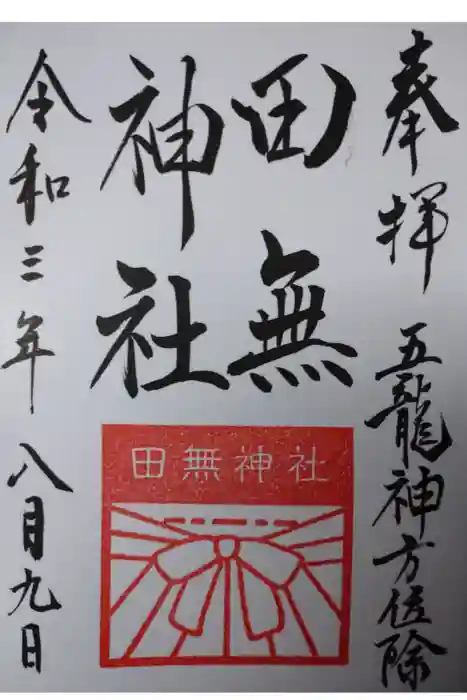 奉拝 五龍神方位除
田無
神社
田無神社
令和三年八月九日